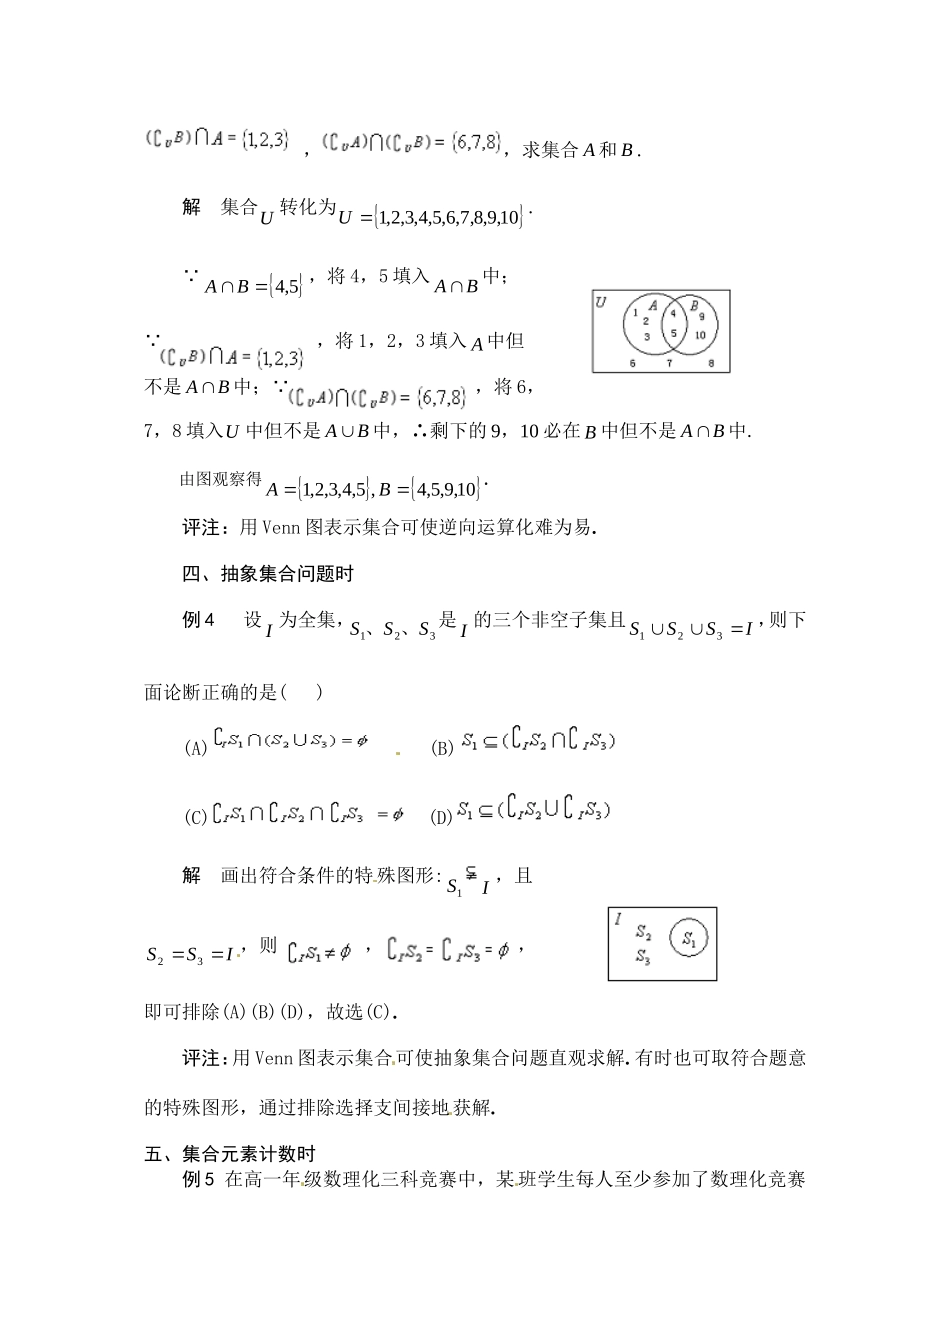 (∁_U B)⋂A={1,2,3}，(∁_U A)⋂(∁_U B)={6,7,8}，求集合 A 和 B .
解 集合 U 转化为 U={1,2,3,4,5,6,7,8,9,10} .
∵ A∩B={4,5}，将 4，5 填入 A∩B 中；
∵(∁_U B)⋂A={1,2,3}，将 1，2，3 填入 A 中但
不是 A∩B 中；∵(∁_U A)⋂(∁_U B)={6,7,8}，将 6，
7，8 填入 U 中但不是 A∪B 中，∴剩下的 9，10 必在 B 中但不是 A∩B 中.
U A B
1 2 3 4 5 9 10
6 7 8
由图观察得 A={1,2,3,4,5}, B={4,5,9,10}.
评注：用 Venn 图表示集合可使逆向运算化难为易.
四、抽象集合问题时
例 4 设 I 为全集，S₁、S₂、S₃ 是 I 的三个非空子集且 S₁∪S₂∪S₃=I，则下
面论断正确的是( )
(A) ∁_I S₁∩(S₂∪S₃)=ϕ (B) S₁⊆(∁_I S₂∩∁_I S₃)
(C) ∁_I S₁∩∁_I S₂∩∁_I S₃=ϕ (D) S₁⊆(∁_I S₂∪∁_I S₃)
解 画出符合条件的特殊图形：S₁⫋I，且
S₂=S₃=I，则 ∁_I S₁≠ϕ，∁_I S₂=∁_I S₃=ϕ，
I S₂ S₁
S₃
即可排除(A)(B)(D)，故选(C).
评注：用 Venn 图表示集合可使抽象集合问题直观求解.有时也可取符合题意
的特殊图形，通过排除选择支间接地获解.
五、集合元素计数时
例 5 在高一年级数理化三科竞赛中，某班学生每人至少参加了数理化竞赛